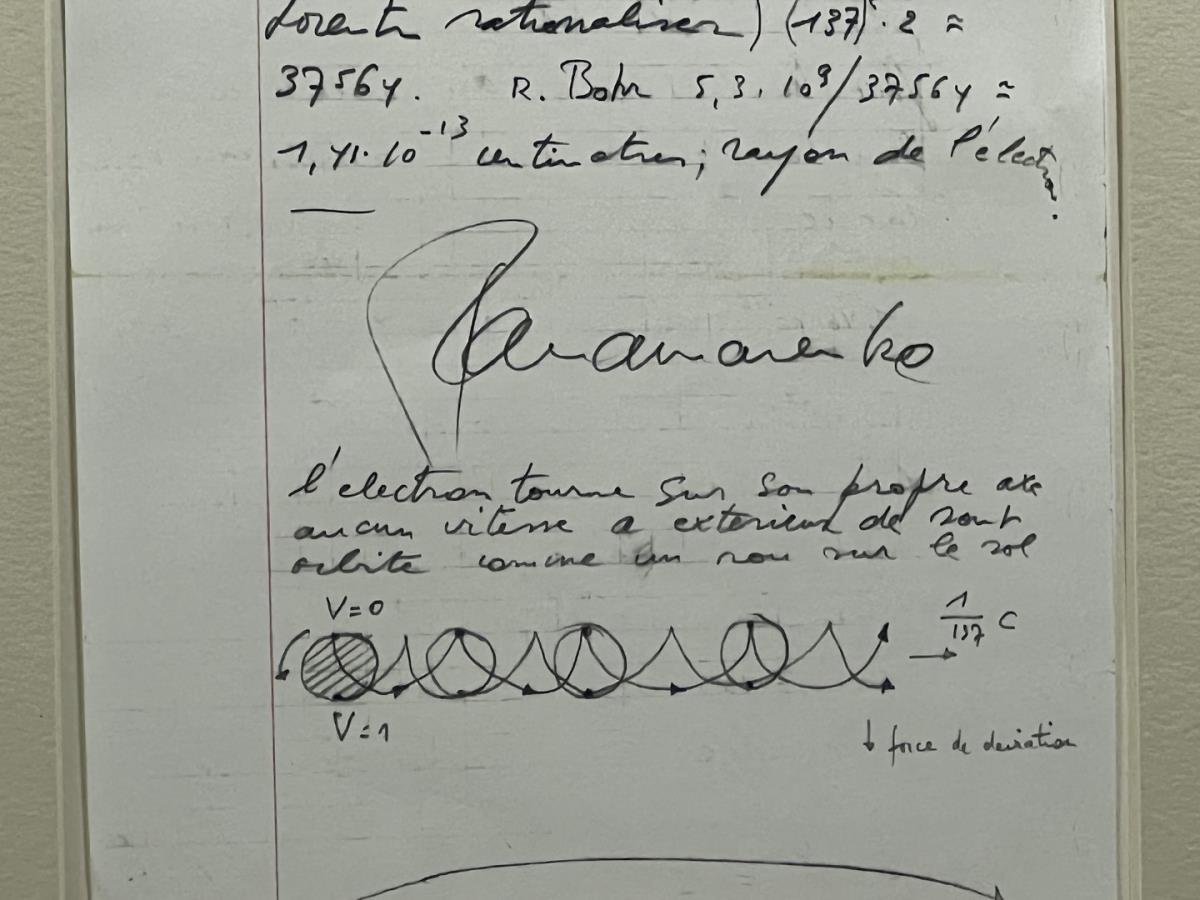 Lorentz rationaliser) (137)² · 2 ≈
37564. R. Bohr 5,3. 10⁹/37564 ≈
1,41·10⁻¹³ centimetres; rayon de l'élect
Panamarenko
l'electron tourne sur son propre axe
aucun vitesse a exterieur de sont
orbite comme un rou sur le sol
V=0
1/137 C
V=1
↓ force de deviation